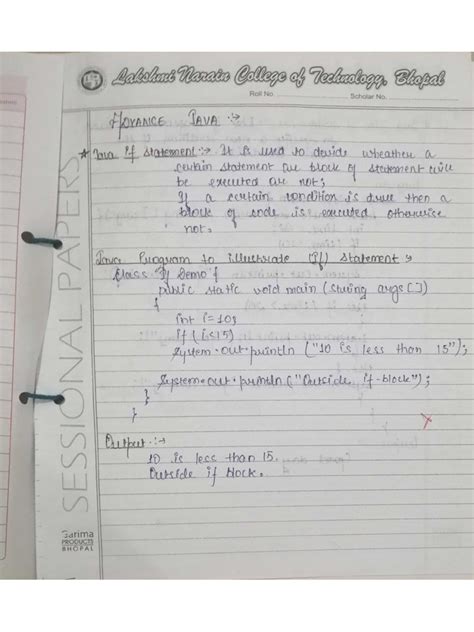 Lakshmi Narain College of Technology, Bhopal
Roll No.
Scholar No.
ADVANCE JAVA :→
* Java if statement :→ It is used to decide wheather a
certain statement are block of statement will
be executed are not;
If a certain condition is true then a
block of code is executed otherwise
not.
Java Program to illustrate (If) statement :→
Class If Demo {
public static void main (string args [])
{
int i=10;
if (i<15)
System.out.println ("10 is less than 15");
System.out.println ("Outside if-block");
}
}
Output :→
10 is less than 15.
Outside if block.
SESSIONAL PAPERS
Garima
PRODUCTS
BHOPAL